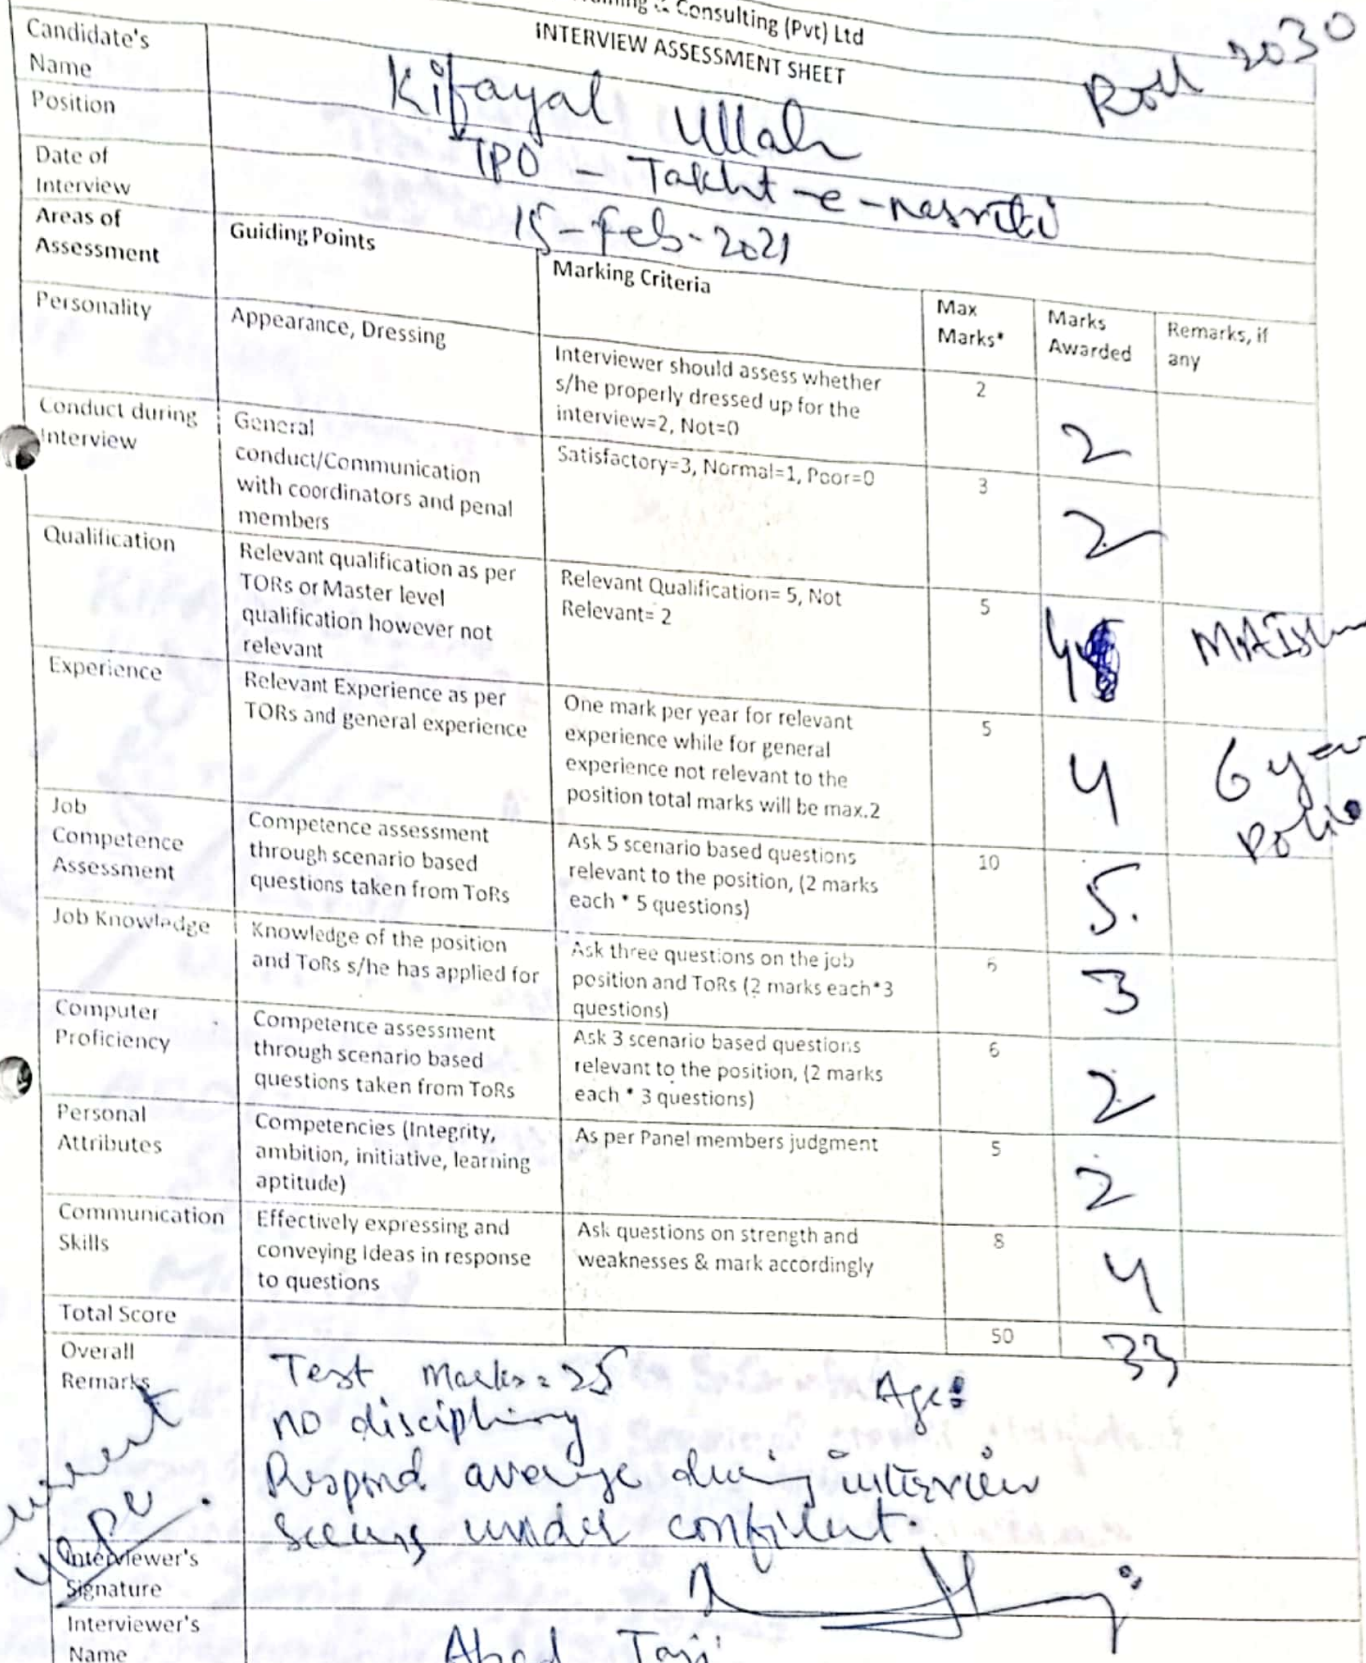 & Consulting (Pvt) Ltd
INTERVIEW ASSESSMENT SHEET
Roll 2030
Candidate's
Name
Kifayal Ullah
Position
TPO - Takht-e-nasrati
Date of
Interview
15-Feb-2021
Areas of
Assessment
Guiding Points
Marking Criteria
Max
Marks*
Marks
Awarded
Remarks, if
any
Personality
Appearance, Dressing
Interviewer should assess whether
s/he properly dressed up for the
interview=2, Not=0
2
2
Conduct during
Interview
General
conduct/Communication
with coordinators and penal
members
Satisfactory=3, Normal=1, Poor=0
3
2
Qualification
Relevant qualification as per
TORs or Master level
qualification however not
relevant
Relevant Qualification= 5, Not
Relevant= 2
5
4
Experience
Relevant Experience as per
TORs and general experience
One mark per year for relevant
experience while for general
experience not relevant to the
position total marks will be max.2
5
4
6 year
Job
Competence
Assessment
Competence assessment
through scenario based
questions taken from ToRs
Ask 5 scenario based questions
relevant to the position, (2 marks
each * 5 questions)
10
5.
Job Knowledge
Knowledge of the position
and ToRs s/he has applied for
Ask three questions on the job
position and ToRs (2 marks each*3
questions)
6
3
Computer
Proficiency
Competence assessment
through scenario based
questions taken from ToRs
Ask 3 scenario based questions
relevant to the position, (2 marks
each * 3 questions)
6
2
Personal
Attributes
Competencies (Integrity,
ambition, initiative, learning
aptitude)
As per Panel members judgment
5
2
Communication
Skills
Effectively expressing and
conveying Ideas in response
to questions
Ask questions on strength and
weaknesses & mark accordingly
8
4
Total Score
50
33
Overall
Remarks
Test Marks = 25
Age:
no discipliny
Respond average during interview
seems under confident.
Interviewer's
Signature
Interviewer's
Name